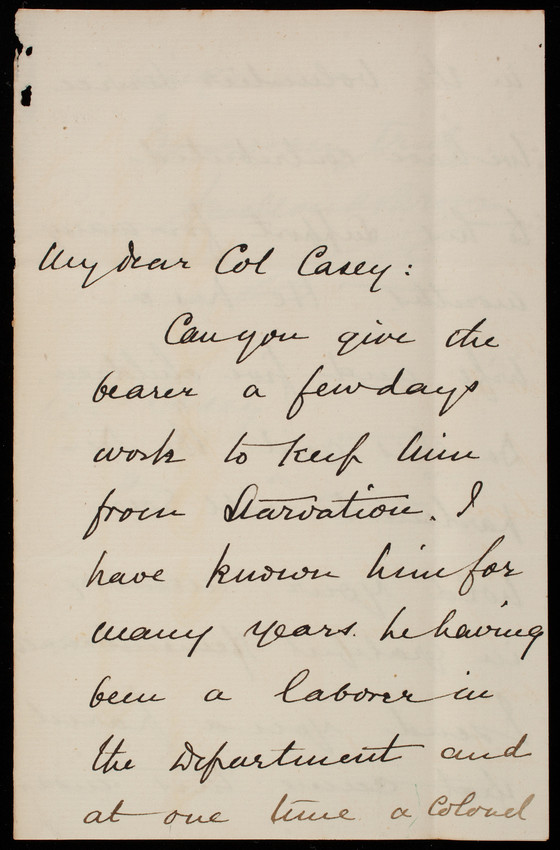 My dear Col Casey:
Can you give the
bearer a few days
work to keep him
from starvation. I
have known him for
many years. he having
been a laborer in
the Department and
at one time a Colonel